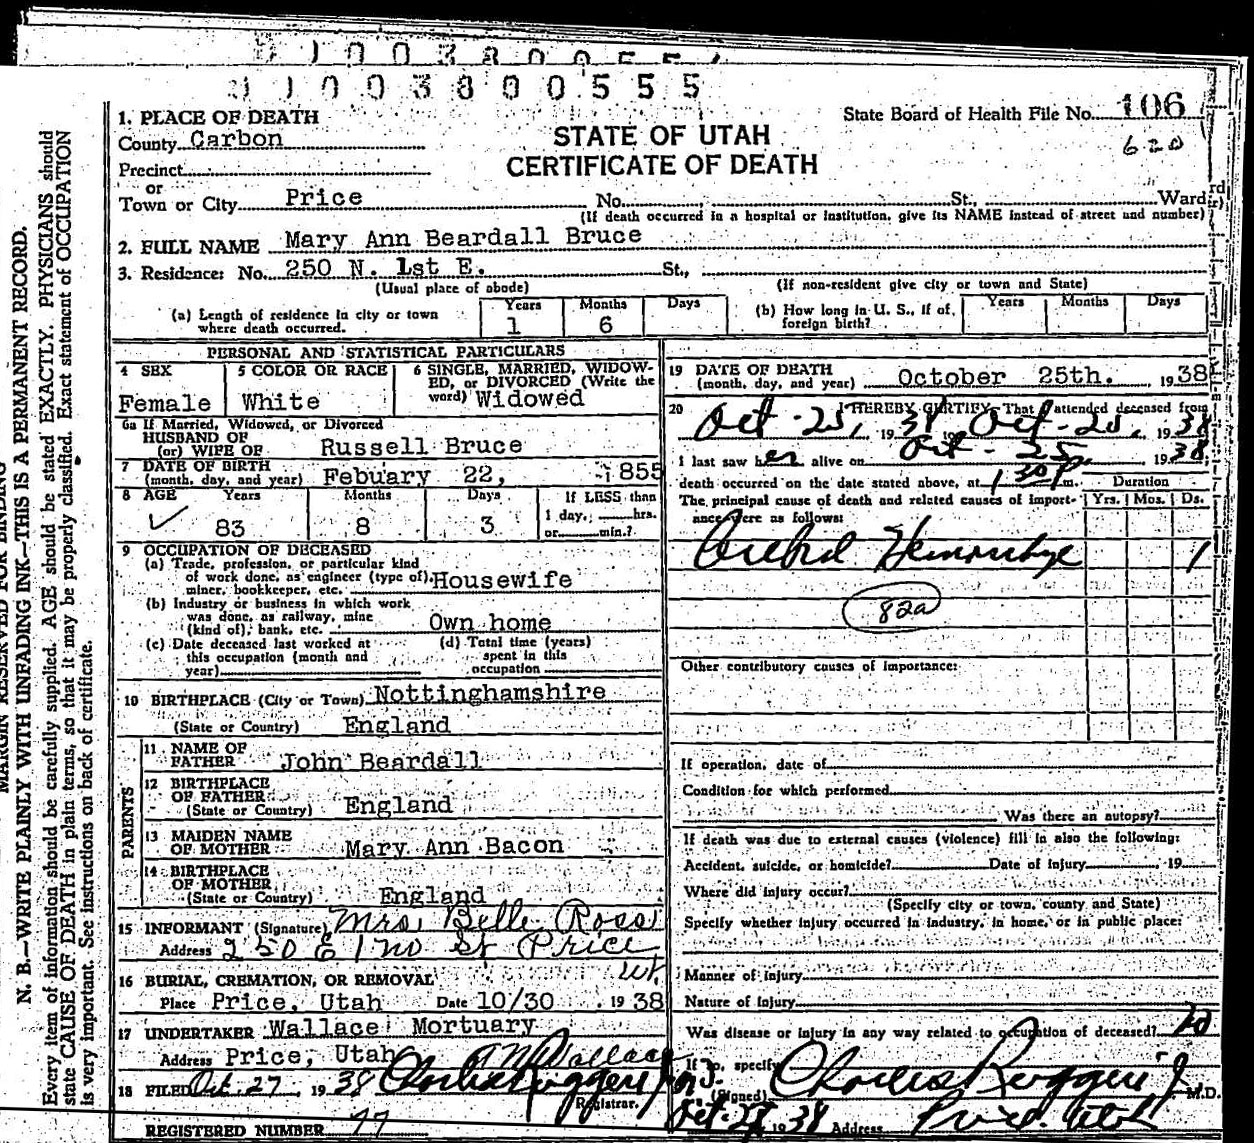 1003800555
1. PLACE OF DEATH
State Board of Health File No. 106
620
County Carbon
STATE OF UTAH
CERTIFICATE OF DEATH
Precinct
or
Town or City Price No. St., Ward
(If death occurred in a hospital or institution, give its NAME instead of street and number)
2. FULL NAME Mary Ann Beardall Bruce
3. Residence: No. 250 N. 1st E. St.,
(Usual place of abode) (If non-resident give city or town and State)
(a) Length of residence in city or town where death occurred. Years 1 Months 6 Days
(b) How long in U. S., if of foreign birth? Years Months Days
PERSONAL AND STATISTICAL PARTICULARS
4 SEX Female
5 COLOR OR RACE White
6 SINGLE, MARRIED, WIDOW-
ED, or DIVORCED (Write the
word) Widowed
6a If Married, Widowed, or Divorced
HUSBAND OF
(or) WIFE OF Russell Bruce
7 DATE OF BIRTH
(month, day, and year) Febuary 22, 1855
8 AGE Years Months Days If LESS than
83 8 3 1 day, hrs.
or min.?
9 OCCUPATION OF DECEASED
(a) Trade, profession, or particular kind
of work done, as engineer (type of) Housewife
miner, bookkeeper, etc.
(b) Industry or business in which work
was done, as railway, mine
(kind of), bank, etc. Own home
(c) Date deceased last worked at
this occupation (month and
year)
(d) Total time (years)
spent in this
occupation
10 BIRTHPLACE (City or Town) Nottinghamshire
(State or Country) England
PARENTS
11 NAME OF
FATHER John Beardall
12 BIRTHPLACE
OF FATHER
(State or Country) England
13 MAIDEN NAME
OF MOTHER Mary Ann Bacon
14 BIRTHPLACE
OF MOTHER
(State or Country) England
15 INFORMANT (Signature) Mrs Belle Ross
Address 250 E 1 no St Price
Ut.
16 BURIAL, CREMATION, OR REMOVAL
Place Price, Utah Date 10/30 1938
17 UNDERTAKER Wallace Mortuary
Address Price, Utah Wallace
18 FILED Oct. 27 1938 Charles Ruggeri Jr
Registrar.
REGISTERED NUMBER 77
19 DATE OF DEATH
(month, day, and year) October 25th. 1938
20 I HEREBY CERTIFY, That I attended deceased from
Oct - 25, 1938 to Oct - 25, 1938
I last saw her alive on Oct - 25 1938
death occurred on the date stated above, at 1 30 P m.
Duration
The principal cause of death and related causes of import-
ance were as follows:
Yrs. Mos. Ds.
Cerebral Hemorrhage 1
82a
Other contributory causes of importance:
If operation, date of
Condition for which performed
Was there an autopsy?
If death was due to external causes (violence) fill in also the following:
Accident, suicide, or homicide? Date of injury 19
Where did injury occur?
(Specify city or town, county and State)
Specify whether injury occurred in industry, in home, or in public place:
Manner of injury
Nature of injury
Was disease or injury in any way related to occupation of deceased? no
If so, specify
(Signed) Charles Ruggeri Jr M.D.
Oct-27 1938 Address Price, Utah
MARGIN RESERVED FOR BINDING
N. B.—WRITE PLAINLY WITH UNFADING INK—THIS IS A PERMANENT RECORD.
Every item of information should be carefully supplied. AGE should be stated EXACTLY. PHYSICIANS should
state CAUSE OF DEATH in plain terms, so that it may be properly classified. Exact statement of OCCUPATION
is very important. See instructions on back of certificate.